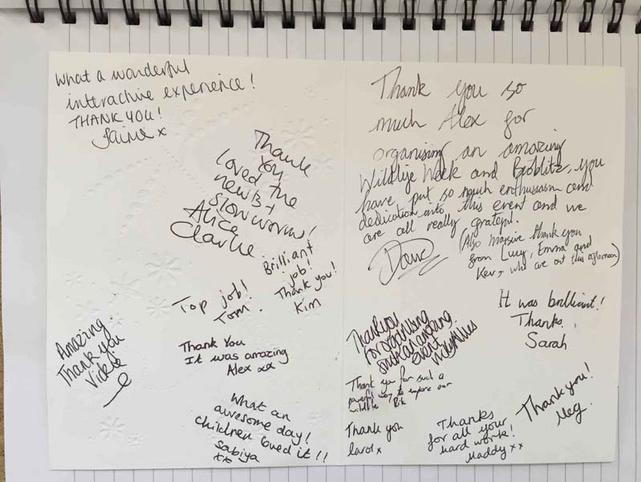 What a wonderful
interactive experience!
THANK YOU!
x
Thank
you
loved the
newt +
slow worm!
Alice
Clarke
Brilliant
job!
Thank you!
Kim
Top job!
Tom.
Amazing.
Thank you
Vickie
Thank You
It was amazing
Alex xx
What an
awesome day!
children loved it!!
Sabiya
xx
Thank you so
much Alex for
organising an amazing
Wildlife Week and Bioblitz, you
have put so much enthusiasm and
dedication into this event and we
are all really grateful.
(Also massive thank you
from Lucy, Emma and
Kev, who are out this afternoon)
It was brilliant!
Thanks.
Sarah
Thank you
for organising
such an amazing
event
Thank you for such a
way to explore our
wildlife
Thank you
Carol x
Thanks
for all your
hard work!
Maddy xx
Thank you!
Meg.